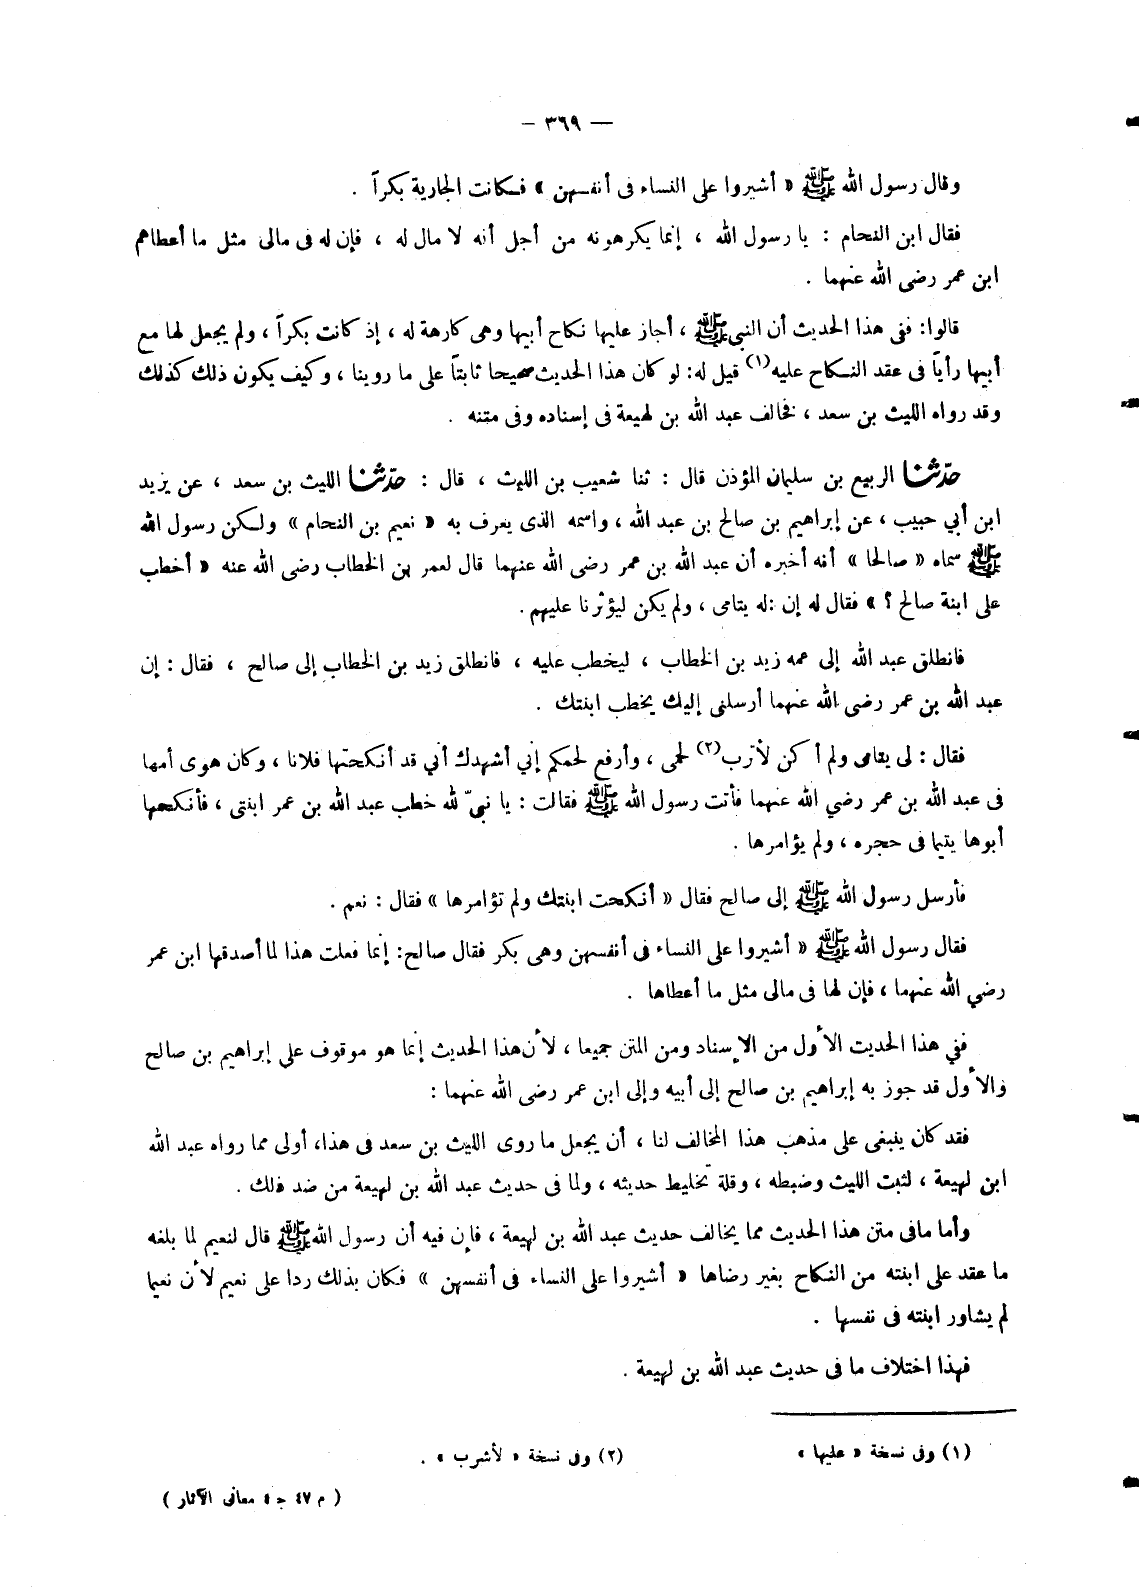 — ٣٦٩ —
وقال رسول الله ﷺ « أشيروا على النساء فى أنفسهن » فكانت الجارية بكراً .
فقال ابن النحام : يا رسول الله ، إنما يكرهونه من أجل أنه لا مال له ، فإن له فى مالى مثل ما أعطاهم
ابن عمر رضى الله عنهما .
قالوا: ففى هذا الحديث أن النبي ﷺ ، أجاز عليها نكاح أبيها وهى كارهة له ، إذ كانت بكراً ، ولم يجعل لها مع
أبيها رأياً فى عقد النكاح عليه(١) قيل له: لو كان هذا الحديث صحيحا ثابتاً على ما روينا ، وكيف يكون ذلك كذلك
وقد رواه الليث بن سعد ، فخالف عبد الله بن لهيعة فى إسناده وفى متنه .
حدّثنا الربيع بن سليمان المؤذن قال : ثنا شعيب بن الليث ، قال : حدّثنا الليث بن سعد ، عن يزيد
ابن أبي حبيب ، عن إبراهيم بن صالح بن عبد الله ، واسمه الذى يعرف به « نعيم بن النحام » ولكن رسول الله
ﷺ سماه « صالحا » أنه أخبره أن عبد الله بن عمر رضى الله عنهما قال لعمر بن الخطاب رضى الله عنه « أخطب
على ابنة صالح ؟ » فقال له إن :له يتامى ، ولم يكن ليؤثرنا عليهم .
فانطلق عبد الله إلى عمه زيد بن الخطاب ، ليخطب عليه ، فانطلق زيد بن الخطاب إلى صالح ، فقال : إن
عبد الله بن عمر رضى الله عنهما أرسلنى إليك يخطب ابنتك .
فقال : لى يتامى ولم أكن لأترب(٢) لحمى ، وأرفع لحمكم إني أشهدك أني قد أنكحتها فلانا ، وكان هوى أمها
فى عبد الله بن عمر رضي الله عنهما فأتت رسول الله ﷺ فقالت : يا نبيّ لله خطب عبد الله بن عمر ابنتى ، فأنكحها
أبوها يتيما فى حجره ، ولم يؤامرها .
فأرسل رسول الله ﷺ إلى صالح فقال « أنكحت ابنتك ولم تؤامرها » فقال : نعم .
فقال رسول الله ﷺ « أشيروا على النساء فى أنفسهن وهى بكر فقال صالح: إنما فعلت هذا لما أصدقها ابن عمر
رضي الله عنهما ، فإن لها فى مالى مثل ما أعطاها .
ففي هذا الحديث الأول من الإسناد ومن المتن جميعا ، لأن هذا الحديث إنما هو موقوف على إبراهيم بن صالح
والأول قد جوز به إبراهيم بن صالح إلى أبيه وإلى ابن عمر رضى الله عنهما :
فقد كان ينبغى على مذهب هذا المخالف لنا ، أن يجعل ما روى الليث بن سعد فى هذا، أولى مما رواه عبد الله
ابن لهيعة ، لثبت الليث وضبطه ، وقلة تخليط حديثه ، ولما فى حديث عبد الله بن لهيعة من ضد ذلك .
وأما مافى متن هذا الحديث مما يخالف حديث عبد الله بن لهيعة ، فإن فيه أن رسول الله ﷺ قال لنعيم لما بلغه
ما عقد على ابنته من النكاح بغير رضاها « أشيروا على النساء فى أنفسهن » فكان بذلك ردا على نعيم لأن نعيما
لم يشاور ابنته فى نفسها .
فهذا اختلاف ما فى حديث عبد الله بن لهيعة .
(١) وفى نسخة « عليها » (٢) وفى نسخة « لأشرب » .
( م ٤٧ جـ ٤ معانى الآثار )